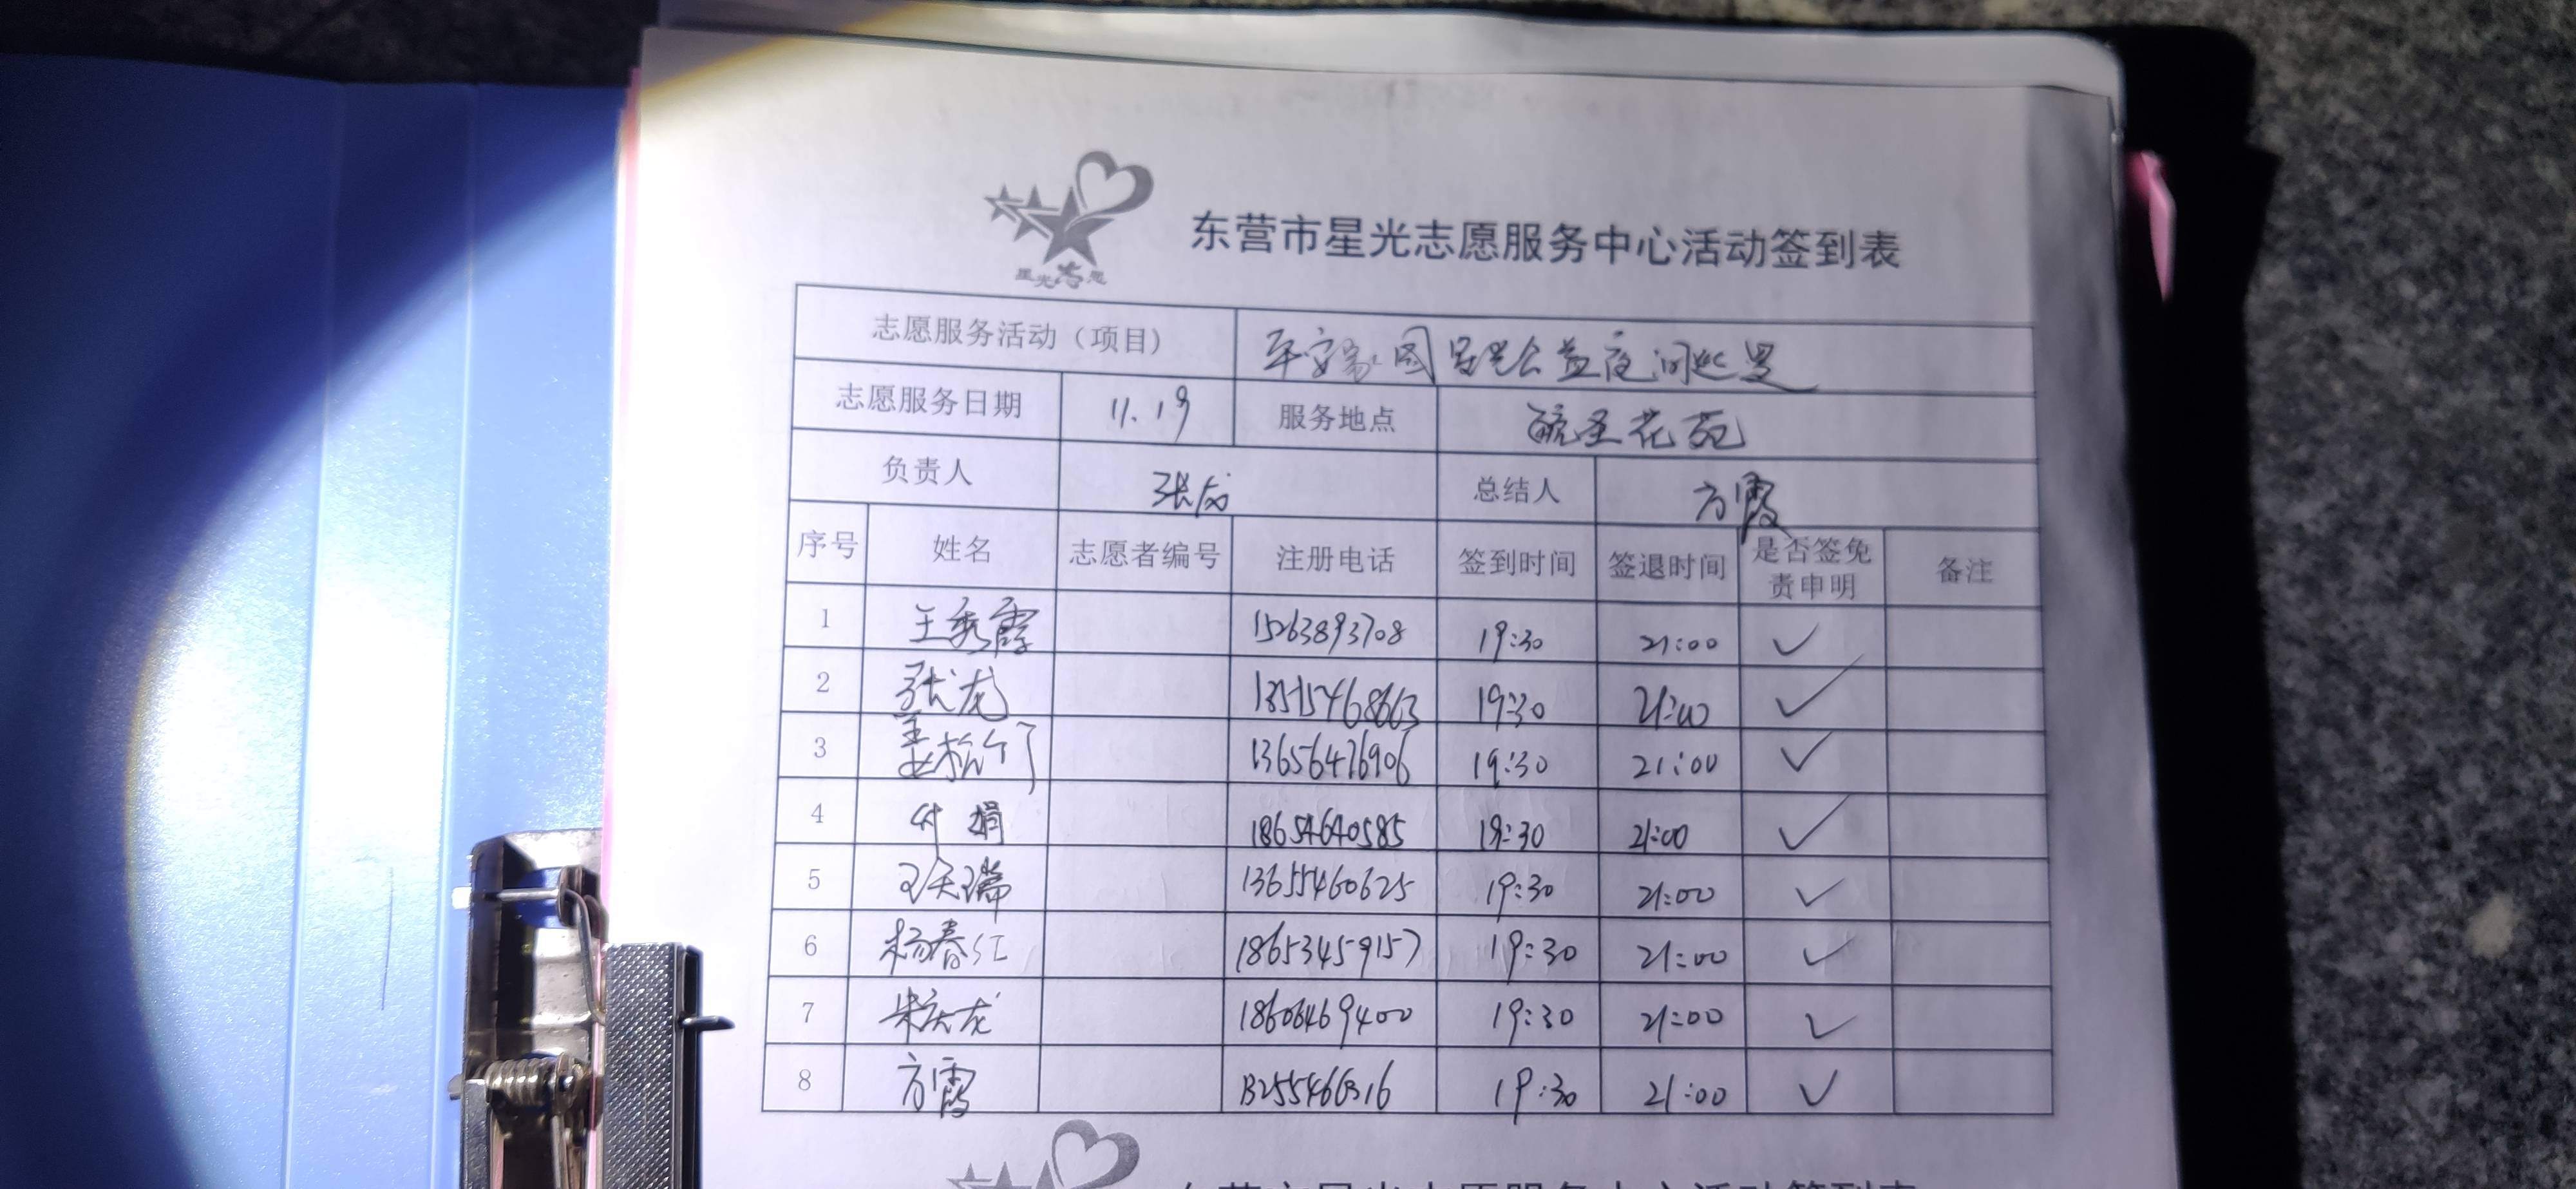 星光志愿
东营市星光志愿服务中心活动签到表
志愿服务活动（项目） 平安家园星光公益夜间巡逻
志愿服务日期 11.19 服务地点 花苑
负责人 张龙 总结人 方霞
序号 姓名 志愿者编号 注册电话 签到时间 签退时间 是否签免责申明 备注
1 王秀霞 15263893708 19:30 21:00 ✓
2 张龙 19:30 21:00 ✓
3 13656476906 19:30 21:00 ✓
4 付娟 18654640585 19:30 21:00 ✓
5 王天瑞 13655460625 19:30 21:00 ✓
6 杨春红 18653459157 19:30 21:00 ✓
7 朱庆龙 18606469400 19:30 21:00 ✓
8 方霞 13255466316 19:30 21:00 ✓
东营市星光志愿服务中心活动签到表